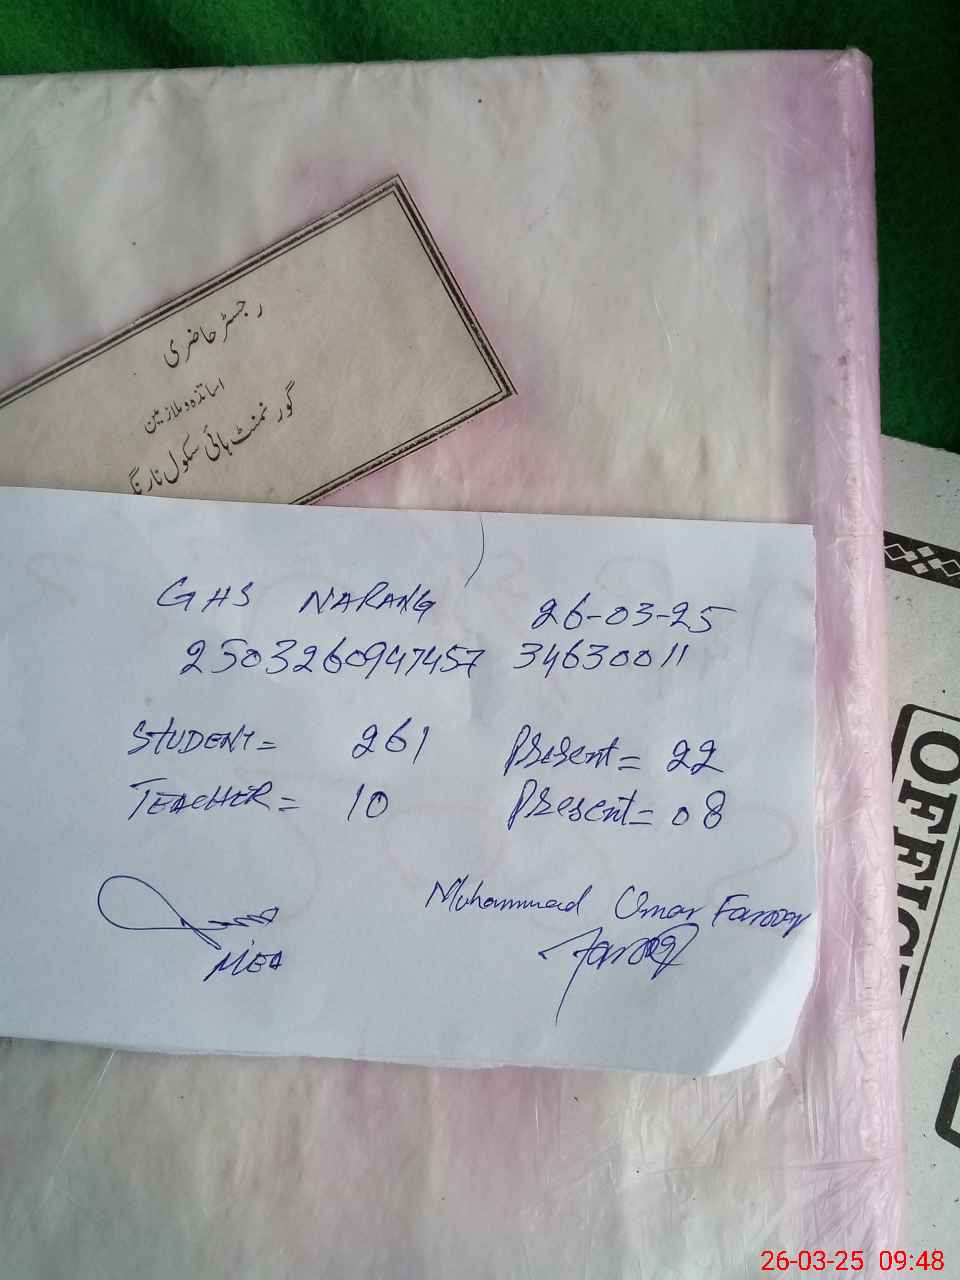 رجسٹر حاضری
اساتذہ و ملازمین
گورنمنٹ ہائی سکول نارنگ
GHS NARANG 26-03-25
2503260947457 34630011
STUDENT = 261 Present = 22
TEACHER = 10 Present = 08
Muhammad Umar Farooq
Farooq
MEA
OFFICE
26-03-25 09:48